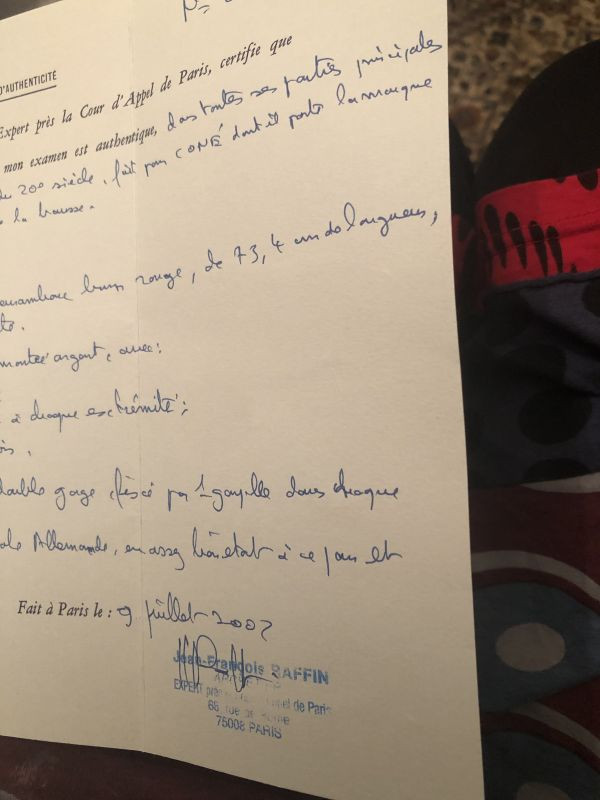 N°
D'AUTHENTICITÉ
Expert près la Cour d'Appel de Paris, certifie que
mon examen est authentique, dans toutes ses parties principales
du 20e siècle, fait par CONÉ dont il porte la marque
la hausse.
brun rouge, de 73,4 cm de longueur,
monté argent, avec:
à chaque extrémité;
double gage par 1 dans chaque
Allemande, en assez bon état à ce jour et
Fait à Paris le : 9 juillet 2002
Jean-François RAFFIN
EXPERT près la Cour d'Appel de Paris
68, rue de Rome
75008 PARIS